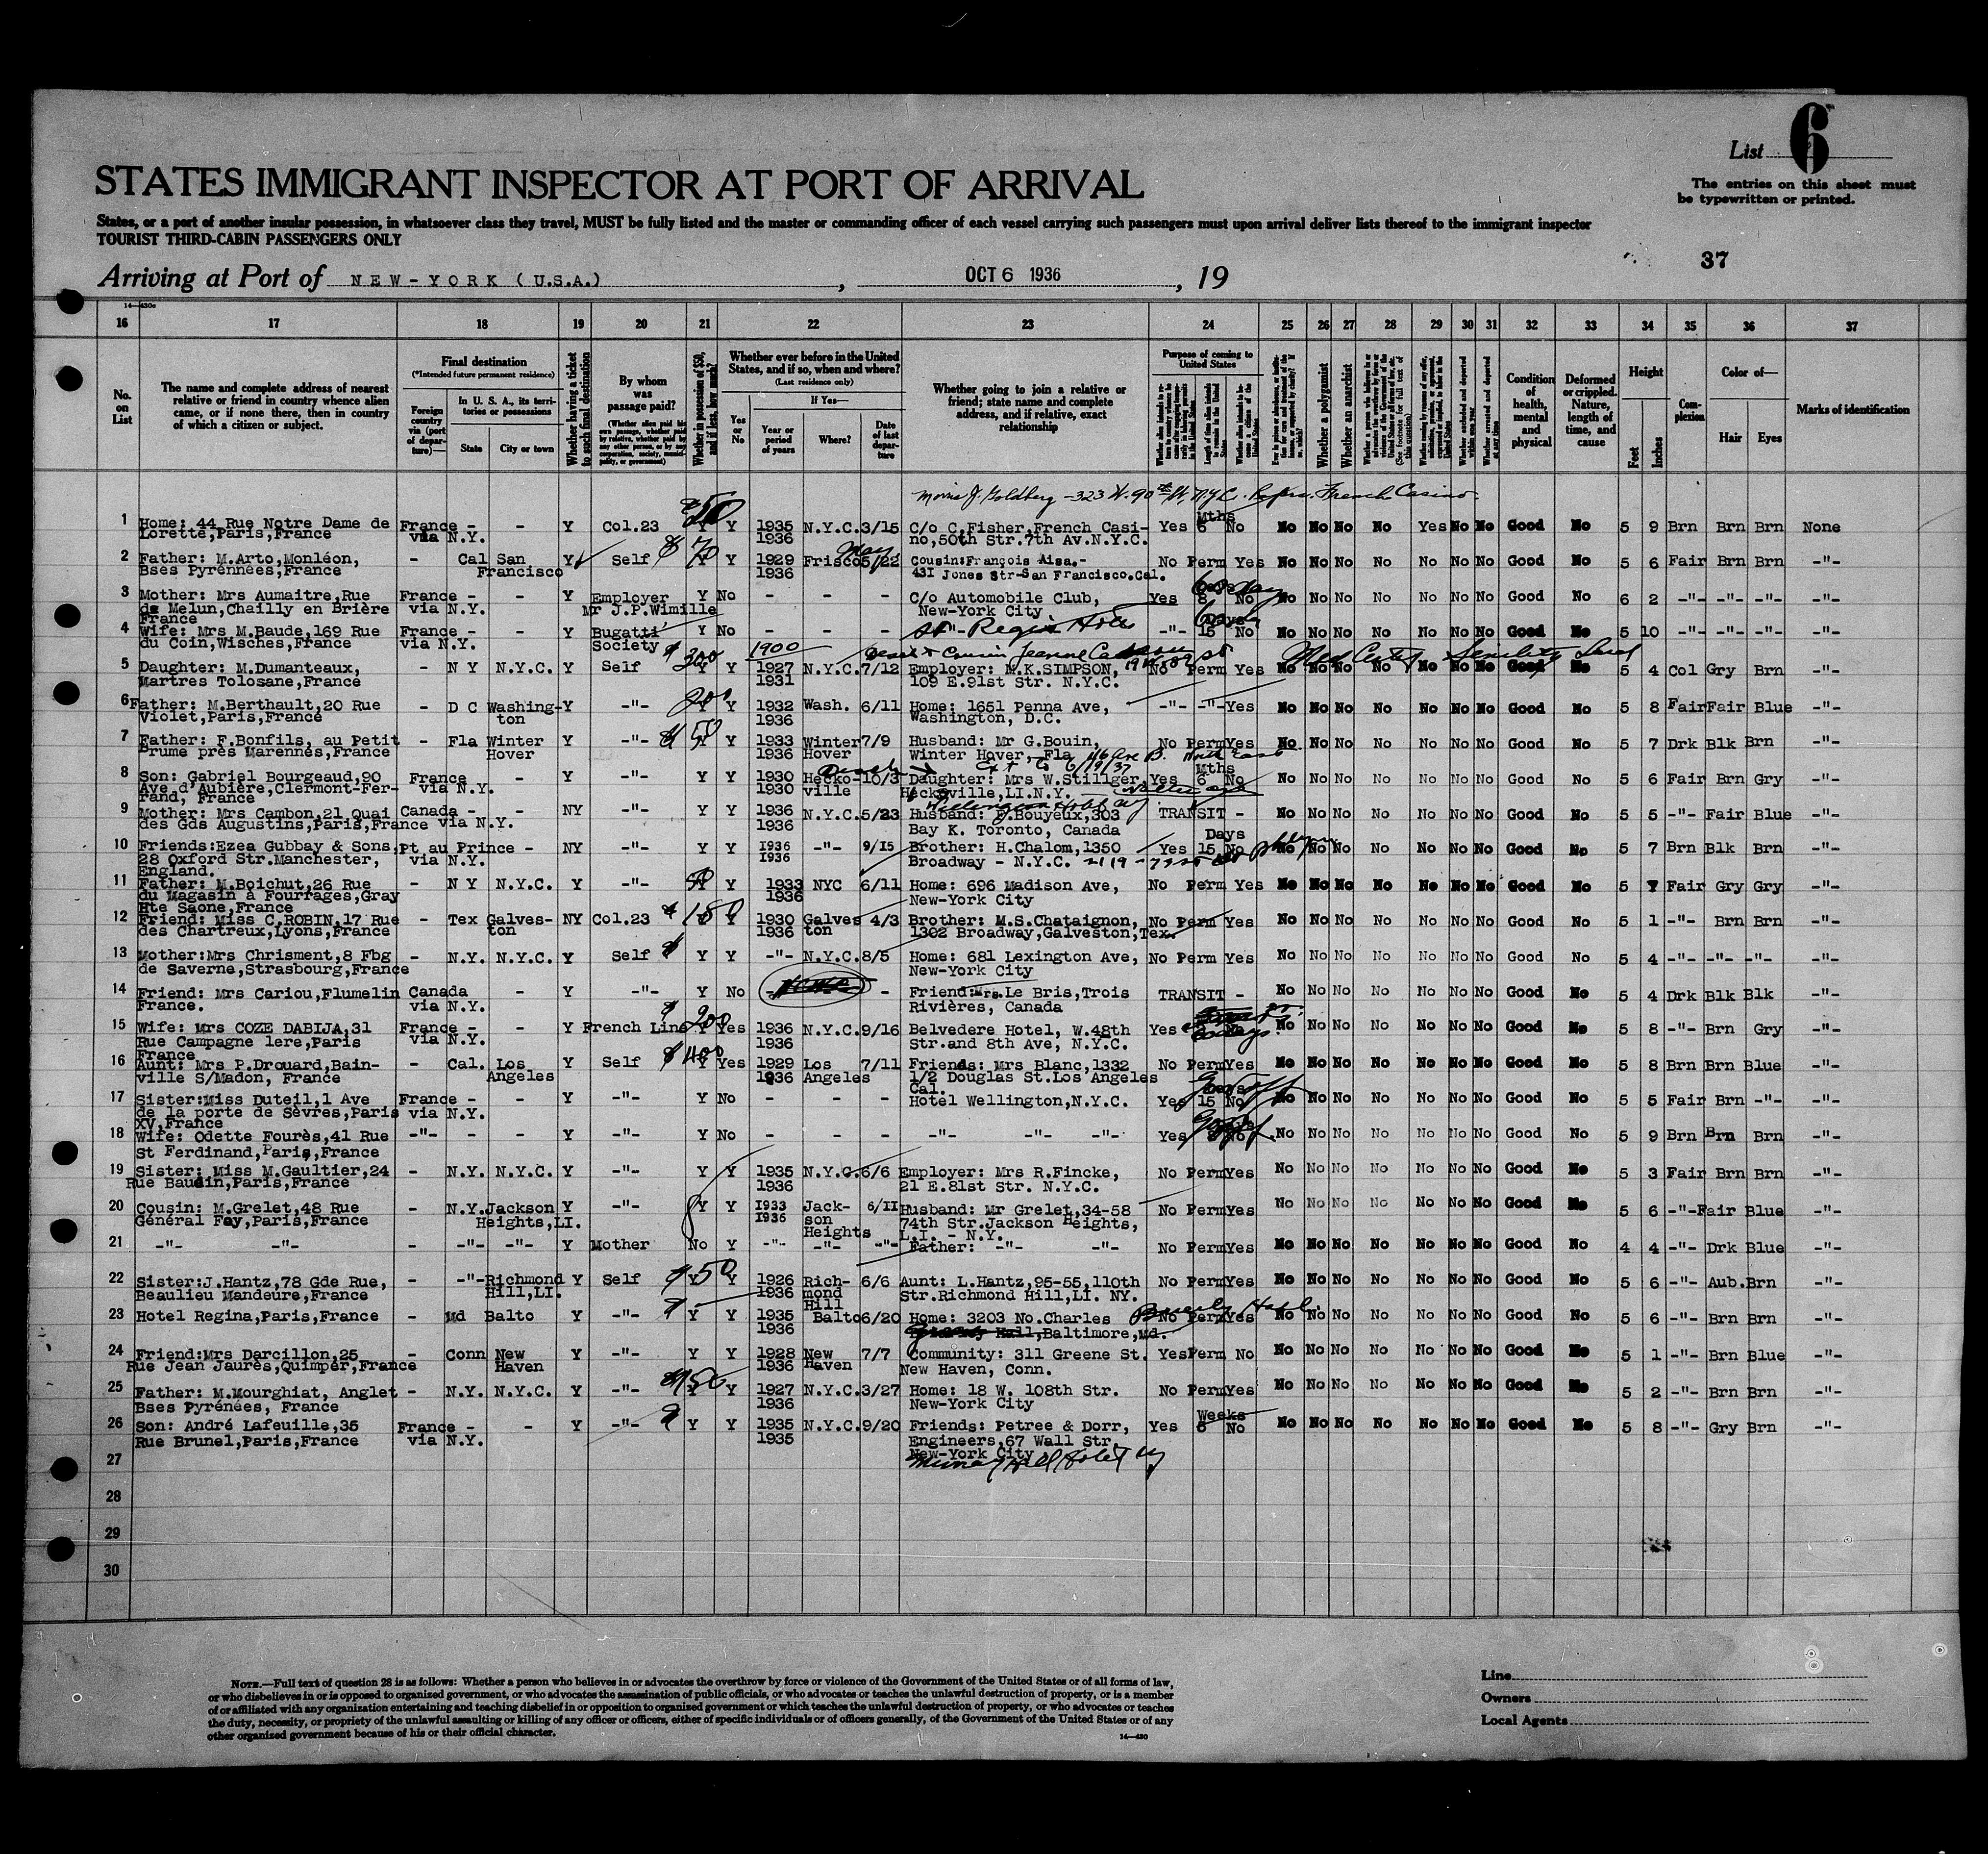 List 6
The entries on this sheet must
be typewritten or printed.
STATES IMMIGRANT INSPECTOR AT PORT OF ARRIVAL
States, or a port of another insular possession, in whatsoever class they travel, MUST be fully listed and the master or commanding officer of each vessel carrying such passengers must upon arrival deliver lists thereof to the immigrant inspector
TOURIST THIRD-CABIN PASSENGERS ONLY
37
Arriving at Port of NEW-YORK (U.S.A.), OCT 6 1936, 19
16 17 18 19 20 21 22 23 24 25 26 27 28 29 30 31 32 33 34 35 36 37
No. on List
The name and complete address of nearest relative or friend in country whence alien came, or if none there, then in country of which a citizen or subject.
Final destination
(*Intended future permanent residence)
Foreign country via (port of departure)—
In U. S. A., its territories or possessions
State City or town
Whether having a ticket to such final destination
By whom was passage paid?
Whether in possession of $50, and if less, how much?
Whether ever before in the United States, and if so, when and where?
(Last residence only)
Yes or No
If Yes—
Year or period of years Where? Date of last departure
Whether going to join a relative or friend; state name and complete address, and if relative, exact relationship
Purpose of coming to United States
Whether a polygamist
Whether an anarchist
Condition of health, mental and physical
Deformed or crippled. Nature, length of time, and cause
Height
Feet Inches
Complexion
Color of—
Hair Eyes
Marks of identification
Morris J. Goldberg - 323 W. 90th St, N.Y.C. French Casino
1 Home: 44 Rue Notre Dame de France - - Y Col.23 $50 Y Y 1935 N.Y.C. 3/15 C/o C.Fisher,French Casi- Yes 6 Mths No No No No No Yes No No Good No 5 9 Brn Brn Brn None
Lorette,Paris,France via N.Y. 1936 no,50th Str.7th Av.N.Y.C.
2 Father: M.Arto,Monléon, - Cal San Y Self $70 Y Y 1929 Frisco 5/22 May Cousin:François Aisa.- No Perm Yes No No No No No No No Good No 5 6 Fair Brn Brn -"-
Bses Pyrénnées,France Francisco 1936 431 Jones Str-San Francisco.Cal.
3 Mother: Mrs Aumaitre,Rue France - - Y Employer Y No - - - C/o Automobile Club, Yes 8 No No No No No No No No Good No 6 2 -"- -"- -"- -"-
de Melun,Chailly en Brière via N.Y. Mr J.P.Wimille New-York City
France
4 Wife: Mrs M.Baude,169 Rue France - - Y Bugatti Y No - - - St Regis Hotel -"- 15 No No No No No No No No Good No 5 10 -"- -"- -"- -"-
du Coin,Wisches,France via N.Y. Society
5 Daughter: M.Dumanteaux, - N Y N.Y.C. Y Self $300 Y 1900 1927 N.Y.C. 7/12 Employer: M.K.SIMPSON, No Perm Yes No No No No No No No Good No 5 4 Col Gry Brn -"-
Martres Tolosane,France 1931 109 E.91st Str. N.Y.C.
6 Father: M.Berthault,20 Rue - D C Washing- Y -"- 200 Y 1932 Wash. 6/11 Home: 1651 Penna Ave, -"- -"- Yes No No No No No No No Good No 5 8 Fair Fair Blue -"-
Violet,Paris,France ton 1936 Washington, D.C.
7 Father: F.Bonfils, au Petit - Fla Winter Y -"- $50 Y Y 1933 Winter 7/9 Husband: Mr G.Bouin, No Perm Yes No No No No No No No Good No 5 7 Drk Blk Brn -"-
Prume près Marennes,France Hover 1936 Hover Winter Hover, Fla
8 Son: Gabriel Bourgeaud,90 France - Y -"- Y Y 1930 Hecko- 10/3 Daughter: Mrs W.Stillger, Yes 6 Mths No No No No No No No No Good No 5 6 Fair Brn Gry -"-
Ave d'Aubière,Clermont-Fer- via N.Y. 1930 ville Hecksville,LI.N.Y.
rand, France
9 Mother: Mrs Cambon,21 Quai Canada - - NY -"- Y Y 1936 N.Y.C. 5/23 Husband: F.Bouyeux,303 TRANSIT - No No No No No No No Good No 5 5 -"- Fair Blue -"-
des Gds Augustins,Paris,France via N.Y. 1936 Bay K. Toronto, Canada
10 Friends:Ezea Gubbay & Sons, Pt au Prince - NY -"- Y Y 1936 -"- 9/15 Brother: H.Chalom,1350 Yes 15 Days No No No No No No No No Good No 5 7 Brn Blk Brn -"-
28 Oxford Str.Manchester, via N.Y. 1936 Broadway - N.Y.C.
England.
11 Father: M.Boichut,26 Rue - N Y N.Y.C. Y -"- 50 Y 1933 NYC 6/11 Home: 696 Madison Ave, No Perm Yes No No No No No No No Good No 5 Fair Gry Gry -"-
du Magasin à Fourrages,Gray 1936 New-York City
Hte Saone,France
12 Friend: Miss C.ROBIN,17 Rue - Tex Galves- NY Col.23 $180 Y 1930 Galves 4/3 Brother: M.S.Chataignon, No Perm Yes No No No No No No No Good No 5 1 -"- Brn Brn -"-
des Chartreux,Lyons,France ton 1936 ton 1302 Broadway,Galveston,Tex.
13 Mother:Mrs Chrisment,8 Fbg - N.Y. N.Y.C. Y Self $ Y Y -"- N.Y.C. 8/5 Home: 681 Lexington Ave, No Perm Yes No No No No No No No Good No 5 4 -"- -"- -"- -"-
de Saverne,Strasbourg,France New-York City
14 Friend: Mrs Cariou,Flumelin Canada - Y -"- Y No - - Friend:Mrs.Le Bris,Trois TRANSIT - No No No No No No No Good No 5 4 Drk Blk Blk -"-
France. via N.Y. Rivières, Canada
15 Wife: Mrs COZE DABIJA,31 France - - Y French Line $200 Y Yes 1936 N.Y.C. 9/16 Belvedere Hotel, W.48th Yes No No No No No No No Good No 5 8 -"- Brn Gry -"-
Rue Campagne 1ere,Paris via N.Y. 1936 Str.and 8th Ave, N.Y.C.
France
16 Aunt: Mrs P.Drouard,Bain- - Cal. Los Y Self $400 Y Yes 1929 Los 7/11 Friends: Mrs Blanc,1332 No Perm Yes No No No No No No No Good No 5 8 Brn Brn Blue -"-
ville S/Madon, France Angeles 1936 Angeles 1/2 Douglas St.Los Angeles
Cal.
17 Sister:Miss Duteil,1 Ave France - - Y -"- Y No - - - Hotel Wellington,N.Y.C. Yes 15 No No No No No No No No Good No 5 5 Fair Brn -"- -"-
de la porte de Sèvres,Paris via N.Y.
XV,France
18 Wife: Odette Fourès,41 Rue -"- - - Y -"- Y No - - - -"- -"- -"- Yes No No No No No No No No Good No 5 9 Brn Brn Brn -"-
St Ferdinand,Paris,France
19 Sister: Miss M.Gaultier,24 - N.Y. N.Y.C. Y -"- Y Y 1935 N.Y.C. 6/6 Employer: Mrs R.Fincke, No Perm Yes No No No No No No No Good No 5 3 Fair Brn Brn -"-
Rue Baudin,Paris,France 1936 21 E.81st Str. N.Y.C.
20 Cousin: M.Grelet,48 Rue - N.Y. Jackson Y -"- Y Y 1933 Jack- 6/11 Husband: Mr Grelet,34-58 No Perm Yes No No No No No No No Good No 5 6 -"- Fair Blue -"-
Général Foy,Paris,France Heights,LI. 1936 son 74th Str.Jackson Heights,
Heights L.I. - N.Y.
21 -"- -"- - -"- -"- Y Mother No Y -"- -"- -"- Father: -"- -"- No Perm Yes No No No No No No No Good No 4 4 -"- Drk Blue -"-
22 Sister:J.Hantz,78 Gde Rue, - -"- Richmond Y Self $50 Y Y 1926 Rich- 6/6 Aunt: L.Hantz,95-55,110th No Perm Yes No No No No No No No Good No 5 6 -"- Aub. Brn -"-
Beaulieu Mandeure,France Hill,LI. 1936 mond Str.Richmond Hill,LI. NY.
Hill
23 Hotel Regina,Paris,France - Md Balto Y -"- Y Y 1935 Balto 6/20 Home: 3203 No.Charles No Perm Yes No No No No No No No Good No 5 6 -"- Brn Brn -"-
1936 Hall,Baltimore,Md.
24 Friend:Mrs Darcillon,25 - Conn New Y -"- Y Y 1928 New 7/7 Community: 311 Greene St. Yes Perm No No No No No No No No Good No 5 1 -"- Brn Blue -"-
Rue Jean Jaurès,Quimper,France Haven 1936 Haven New Haven, Conn.
25 Father: M.Mourghiat, Anglet - N.Y. N.Y.C. Y -"- $150 Y Y 1927 N.Y.C. 3/27 Home: 18 W. 108th Str. No Perm Yes No No No No No No No Good No 5 2 -"- Brn Brn -"-
Bses Pyrénées, France 1936 New-York City
26 Son: André Lafeuille,35 France - - Y -"- Y Y 1935 N.Y.C. 9/20 Friends: Petree & Dorr, Yes 6 Weeks No No No No No No No No Good No 5 8 -"- Gry Brn -"-
Rue Brunel,Paris,France via N.Y. 1935 Engineers,67 Wall Str.
New-York City
27 Murray Hill Hotel NY
28
29
30
NOTE.—Full text of question 28 is as follows: Whether a person who believes in or advocates the overthrow by force or violence of the Government of the United States or of all forms of law,
or who disbelieves in or is opposed to organized government, or who advocates the assassination of public officials, or who advocates or teaches the unlawful destruction of property, or is a member
of or affiliated with any organization entertaining and teaching disbelief in or opposition to organized government or which teaches the unlawful destruction of property, or who advocates or teaches
the duty, necessity, or propriety of the unlawful assaulting or killing of any officer or officers, either of specific individuals or of officers generally, of the Government of the United States or of any
other organized government because of his or their official character.
14—430
Line
Owners
Local Agents